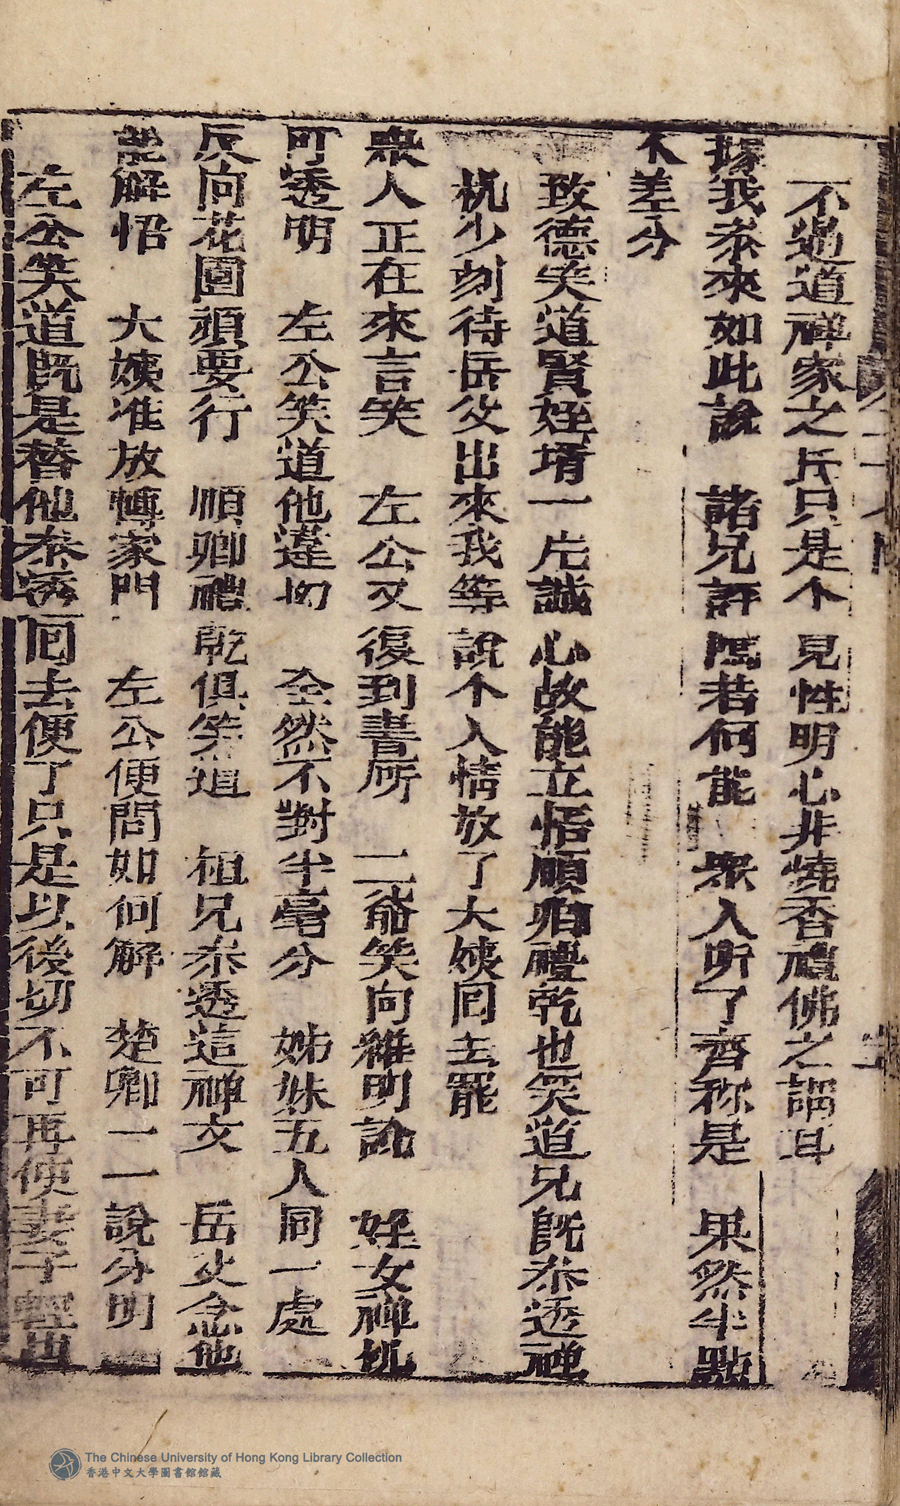 不過道禅家之兵只是个見性明心非燒香禮佛之謂耳
據我参來如此說　諸兄評隲若何能　衆人听了齊称是　果然半點
不差分
致德笑道賢姪壻一片誠心故能立悟顧痴禮乾也笑道兄既参透禅
机少刻待岳父出來我等說个人情放了大姨囘去罷
衆人正在來言笑　左公又復到書所　二爺笑向維明說　姪女禅机
可透明　左公笑道他違切　全然不對半毫分　姊妹五人同一處
反向花園頑要行　順卿禮乾俱笑道　祖兄参透這禅文　岳丈念他
能解悟　大姨准放轉家門　左公便問如何解　楚卿一一說分明
左公笑道既是替他参透囘去便了只是以後切不可再使妻子輕出
The Chinese University of Hong Kong Library Collection
香港中文大學圖書館館藏